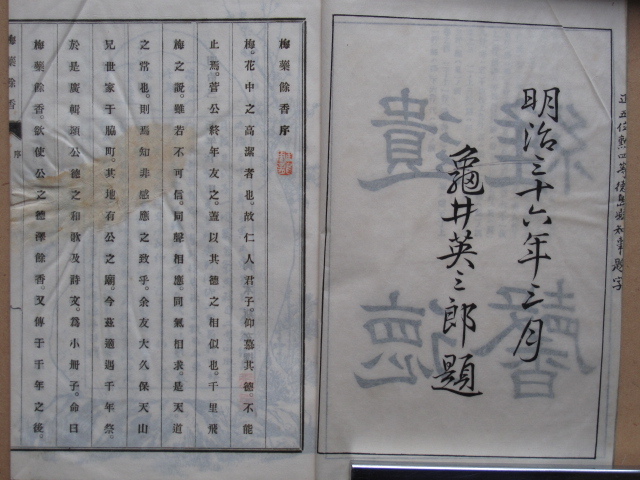 正五位勲四等徳島縣知事題字
明治三十六年三月
龜井英三郎題
梅蘂餘香序
梅。花中之高潔者也。故仁人君子。仰慕其德。不能
止焉。菅公終年友之。蓋以其德之相似也。千里飛
梅之説。雖若不可信。同聲相應。同氣相求。是天道
之常也。則焉知非感應之致乎。余友大久保天山
兄世家于脇町。其地有公之廟。今茲適遇千年祭。
於是廣輯頌公德之和歌及詩文。爲小册子。命曰
梅蘂餘香。欲使公之德澤餘香。又傳于千年之後。
梅蘂餘香 序